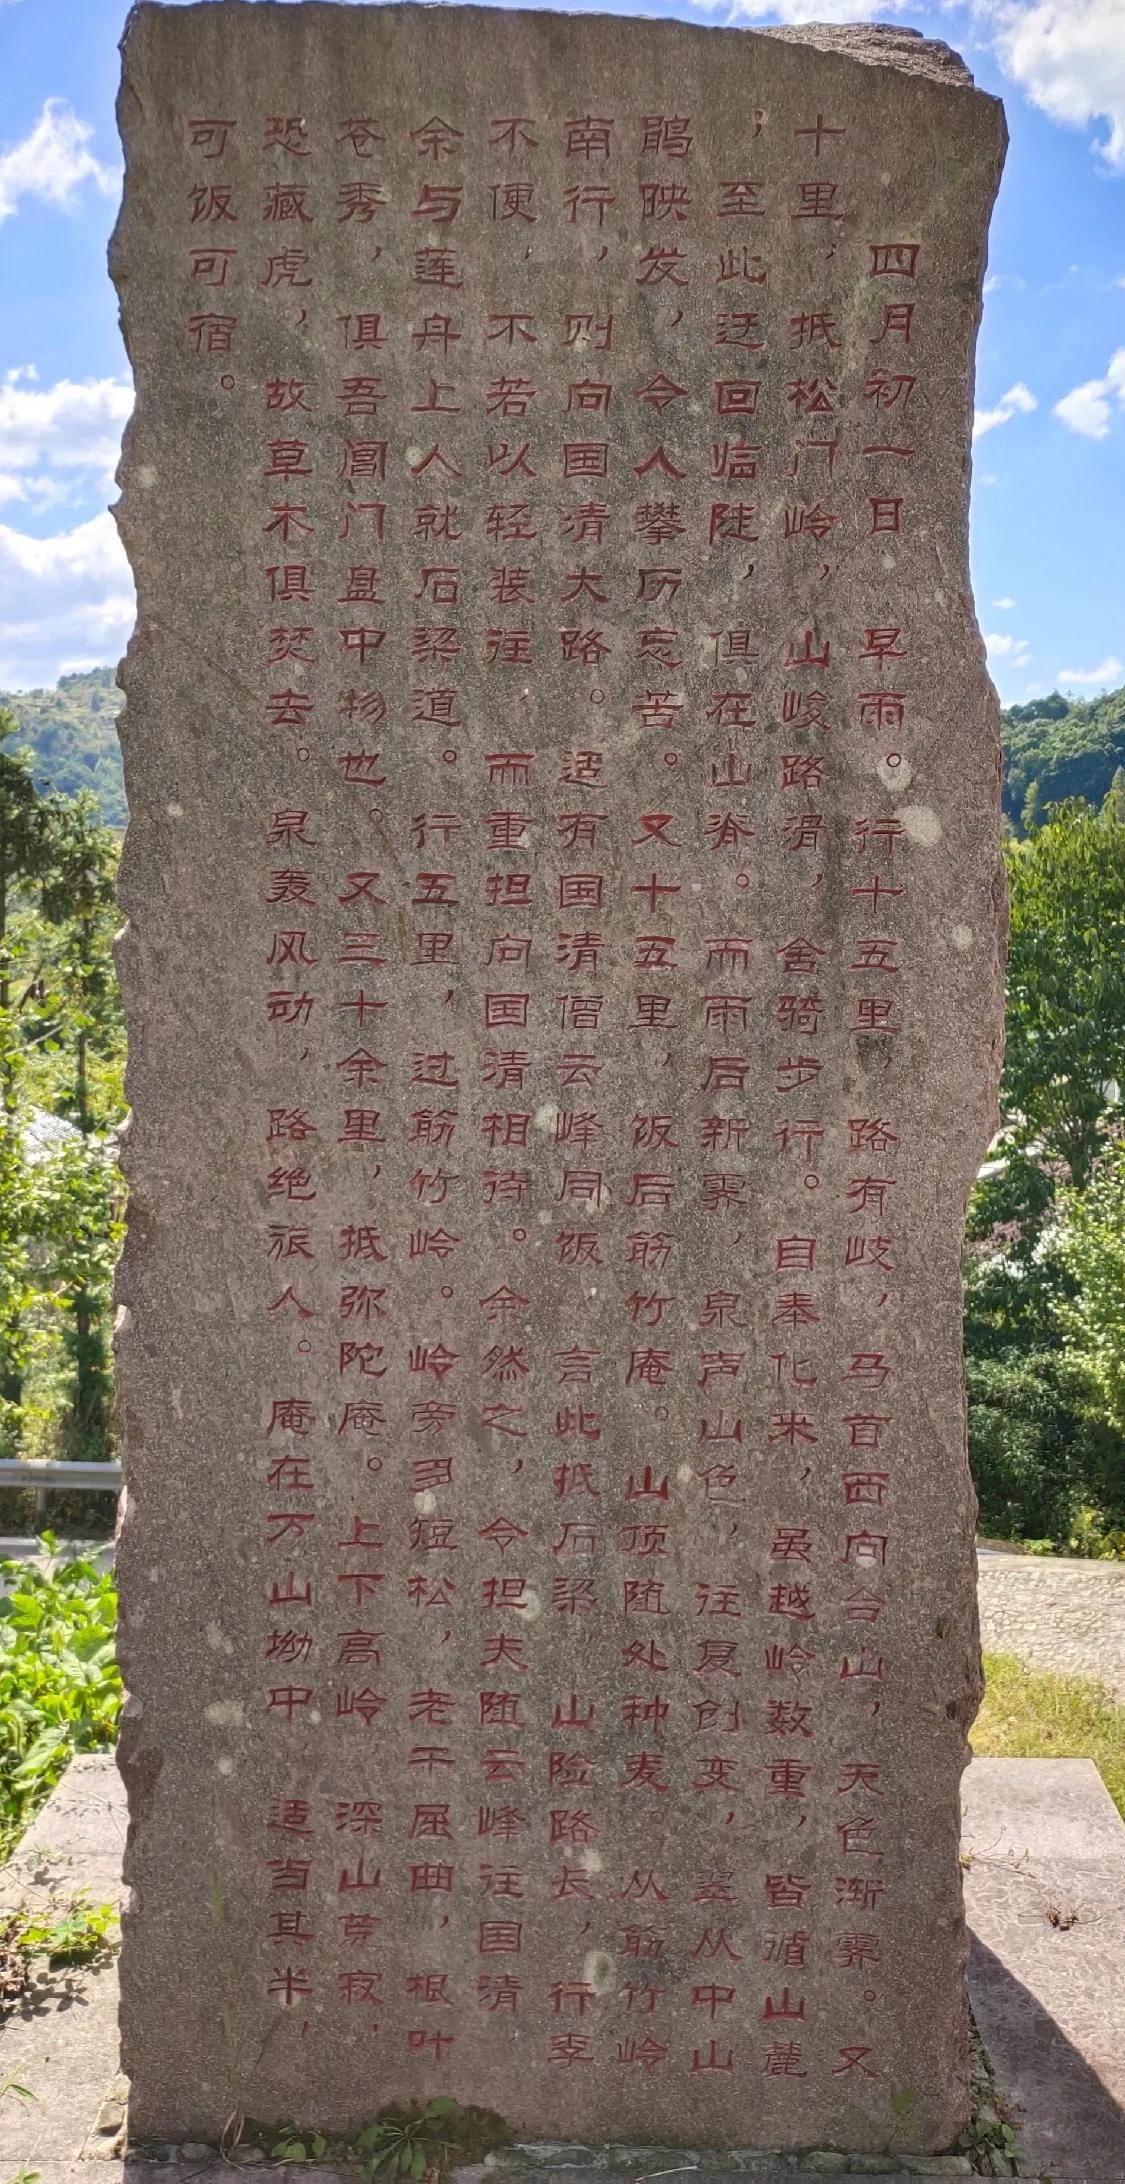 四月初一日。早雨。行十五里，路有岐，马首西向台山，天色渐霁。又
十里，抵松门岭，山峻路滑，舍骑步行。自奉化来，虽越岭数重，皆循山麓
，至此迂回临陡，俱在山脊。而雨后新霁，泉声山色，往复创变，翠丛中山
鹃映发，令人攀历忘苦。又十五里，饭后筋竹庵。山顶随处种麦。从筋竹岭
南行，则向国清大路。适有国清僧云峰同饭，言此抵石梁，山险路长，行李
不便，不若以轻装往，而重担向国清相待。余然之，令担夫随云峰往国清
余与莲舟上人就石梁道。行五里，过筋竹岭。岭旁多短松，老干屈曲，根叶
苍秀，俱吾阊门盘中物也。又三十余里，抵弥陀庵。上下高岭，深山荒寂，
恐藏虎，故草木俱焚去。泉轰风动，路绝旅人。庵在万山坳中，适当其半，
可饭可宿。